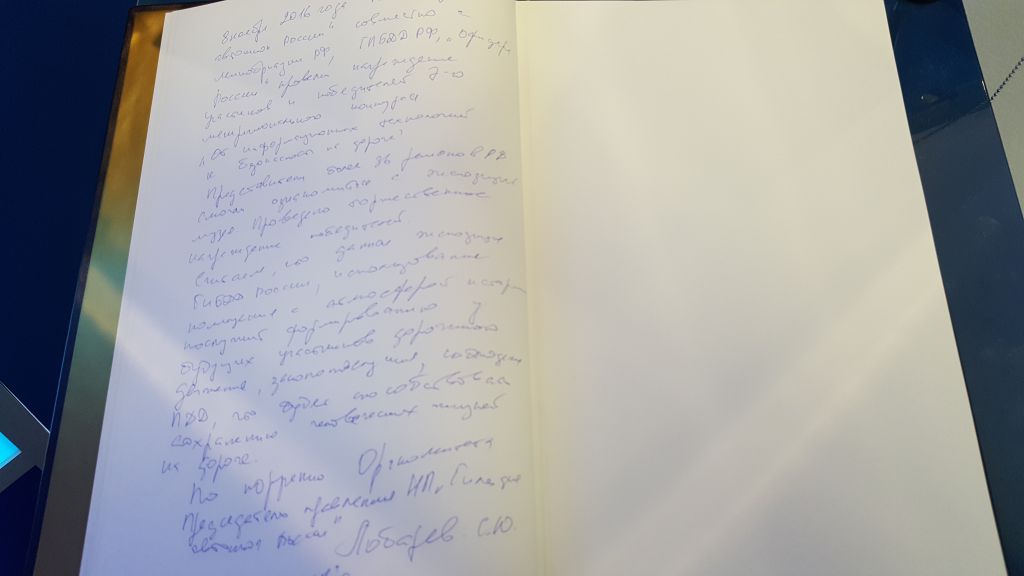 8 ноября 2016 года
автошкол России" совместно с
Минобрнауки РФ, ГИБДД РФ, "Офицеры
России" провели награждение
участников и победителей 7-го
межрегионального конкурса
"От информационных технологий
к безопасности на дороге"
Представители более 36 регионов РФ
смогли ознакомиться с экспозицией
музея. Проведено торжественное
награждение победителей.
Считаем, что данная экспозиция
ГИБДД России, использование
помещения с атмосферой истории
послужит формированию у
будущих участников дорожного
движения, законопослушия, соблюдения
ПДД, что будет способствовать
сохранению человеческих жизней
на дороге.
По поручению Оргкомитета
Председатель правления НП "Гильдия
автошкол России" Лобарев С.Ю.